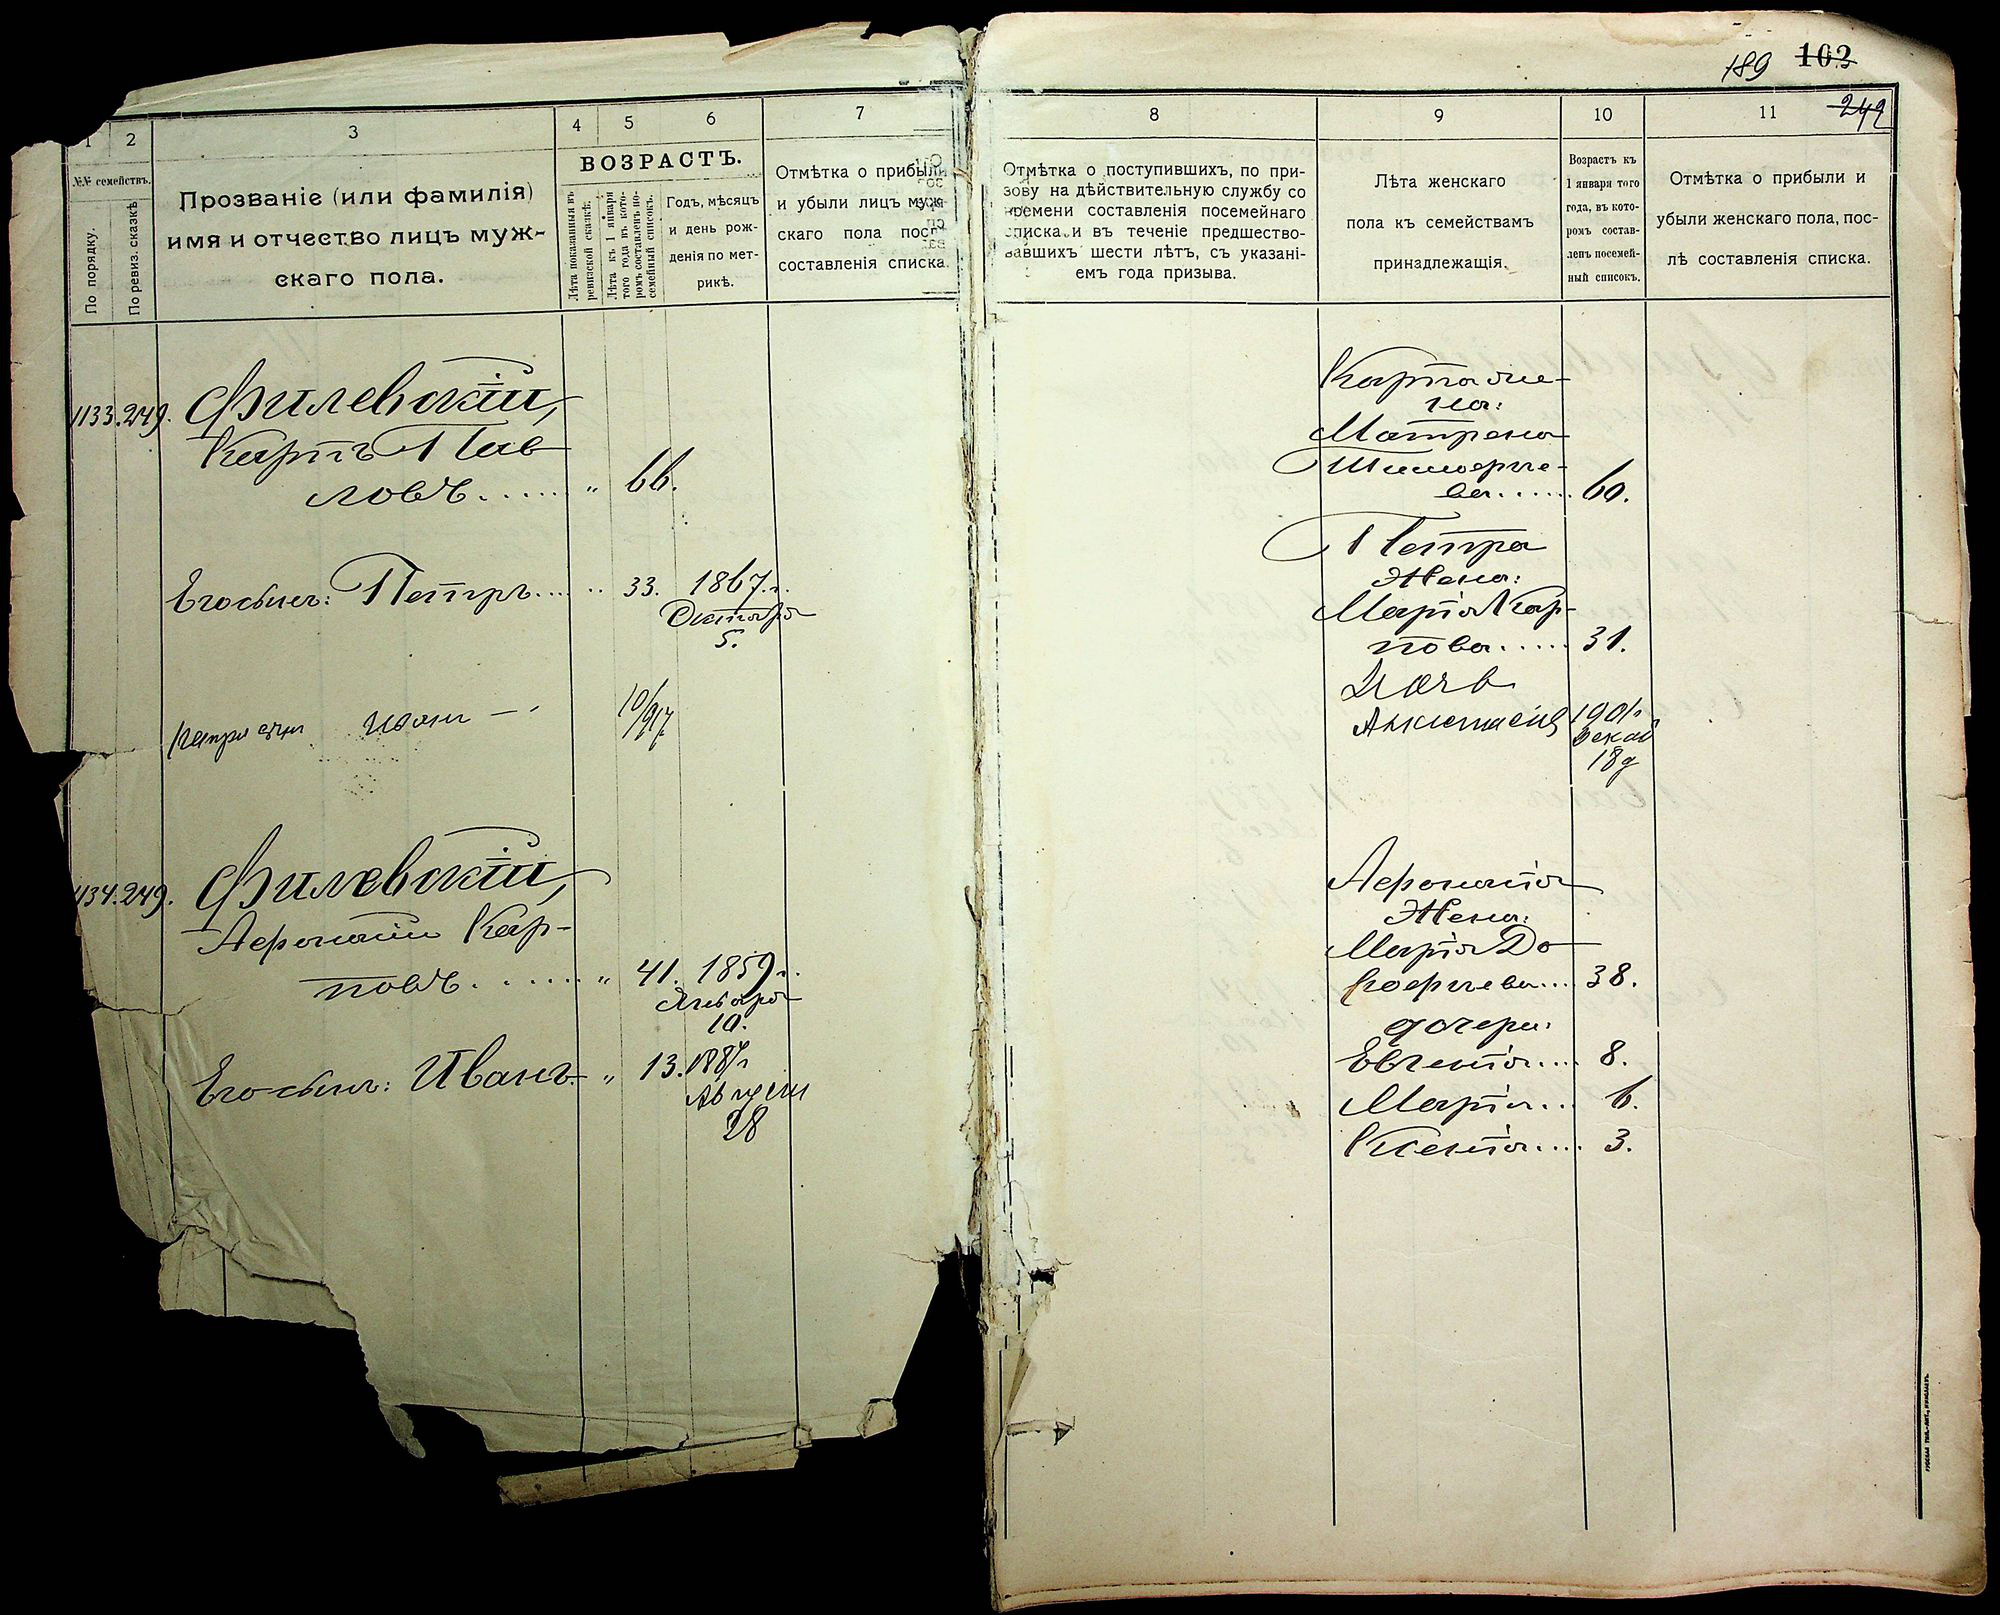 189 103
249
1
2
3
4
5
6
7
№№ семействъ.
По порядку.
По ревиз. сказкѣ
Прозваніе (или фамилія)
имя и отчество лицъ муж-
скаго пола.
ВОЗРАСТЪ.
Лѣта показанныя въ
ревизской сказкѣ.
Лѣта къ 1 января
того года въ кото-
ромъ составленъ по-
семейный списокъ.
Годъ, мѣсяцъ
и день рож-
денія по мет-
рикѣ.
Отмѣтка о прибыли
и убыли лицъ муж-
скаго пола послѣ
составленія списка.
1133. 249. Филевскій,
Карпъ Пав
ловъ...... „ 66.
Его сынъ: Петръ..... 33. 1867 г.
Октября
5.
Петра сын Иван —
10/917
1134. 249. Филевскій,
Афонасій Кар-
повъ....... „ 41. 1859 г.
Января
10.
Его сынъ: Иванъ. „ 13. 1887 г
Августа
28
8
9
10
11
Отмѣтка о поступившихъ, по при-
зову на дѣйствительную службу со
времени составленія посемейнаго
списка и въ теченіе предшество-
вавшихъ шести лѣтъ, съ указані-
емъ года призыва.
Лѣта женскаго
пола къ семействамъ
принадлежащія.
Возрастъ къ
1 января того
года, въ кото-
ромъ состав-
ленъ посемей-
ный списокъ.
Отмѣтка о прибыли и
убыли женскаго пола, пос-
лѣ составленія списка.
Карпа же-
на:
Матрена
Тимофѣе-
ва...... 60.
Петра
Жена:
Марія Кар-
пова..... 31.
Дочь
1901 г
18 д
Афонасія
Жена:
Марія До
рофѣева.... 38.
дочери:
Евгенія.... 8.
Марія... 6.
Ксенія.... 3.